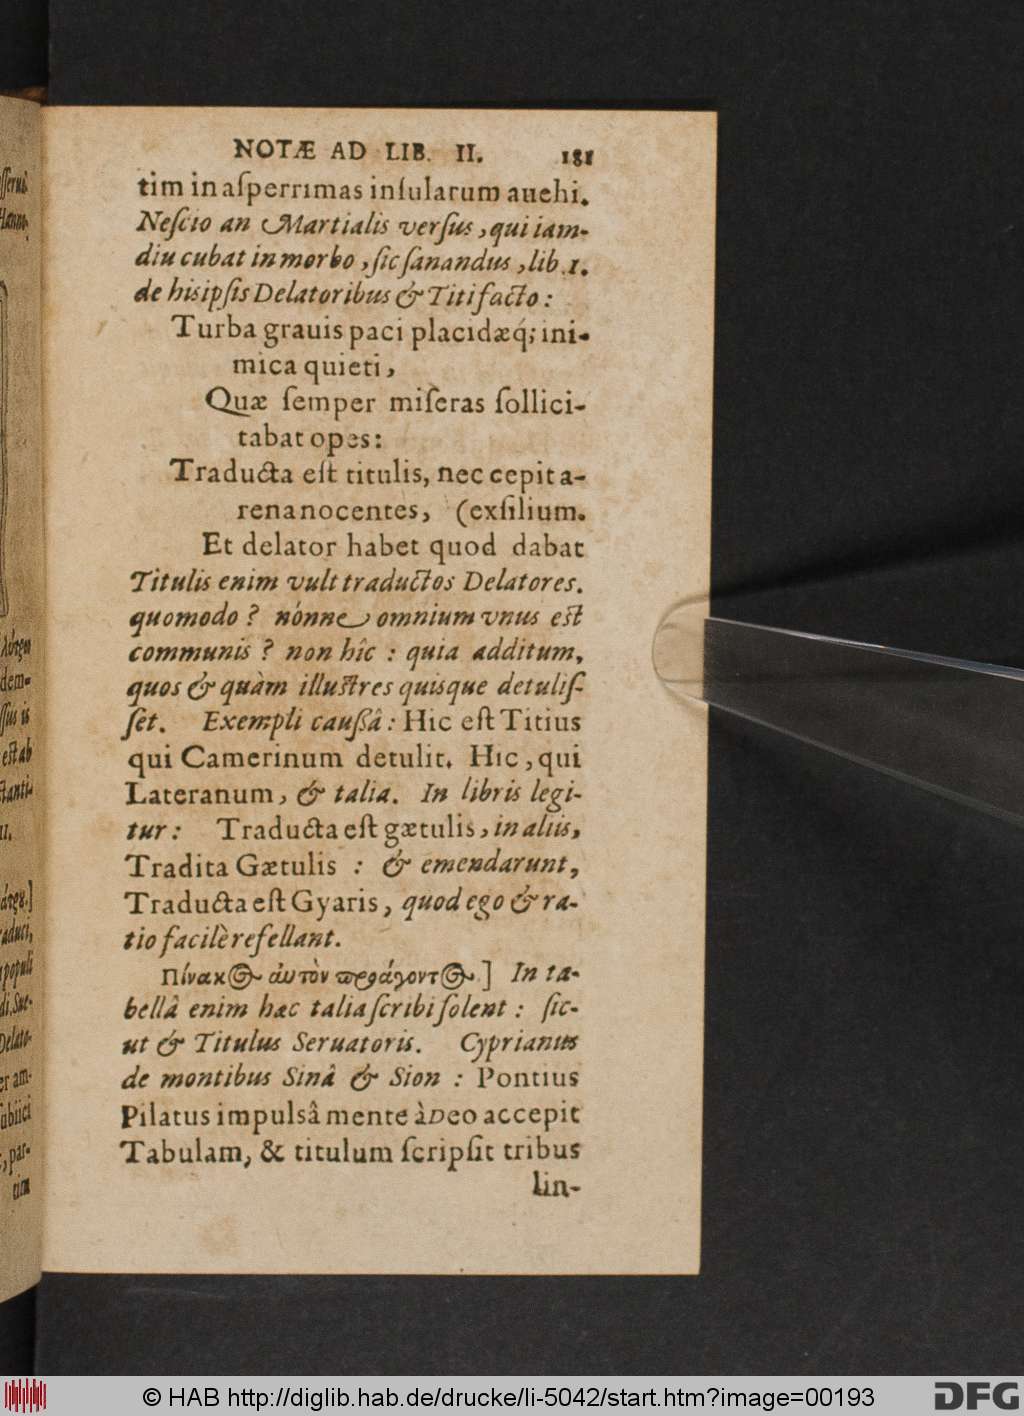 NOTÆ AD LIB. II. 181
tim in aſperrimas inſularum auehi.
Neſcio an Martialis verſus, qui iam-
diu cubat in morbo, ſic ſanandus, lib. 1.
de his ipſis Delatoribus & Titi facto:
Turba grauis paci placidæq́; ini-
mica quieti,
Quæ ſemper miſeras ſollici-
tabat opes:
Traducta eſt titulis, nec cepit a-
rena nocentes, (exſilium.
Et delator habet quod dabat
Titulis enim vult traductos Delatores.
quomodo? nónne omnium vnus eſt
communis? non hîc: quia additum,
quos & quàm illuſtres quisque detuliſ-
ſet. Exempli cauſsâ: Hic eſt Titius
qui Camerinum detulit. Hic, qui
Lateranum, & talia. In libris legi-
tur: Traducta eſt gætulis, in aliis,
Tradita Gætulis: & emendarunt,
Traducta eſt Gyaris, quod ego & ra-
tio facilè refellant.
Πίνακος αὐτὸν προάγοντος.] In ta-
bellâ enim hæc talia ſcribi ſolent: ſic-
ut & Titulus Seruatoris. Cyprianus
de montibus Sinâ & Sion: Pontius
Pilatus impulsâ mente à Deo accepit
Tabulam, & titulum ſcripſit tribus
lin-
tim
© HAB http://diglib.hab.de/drucke/li-5042/start.htm?image=00193
DFG